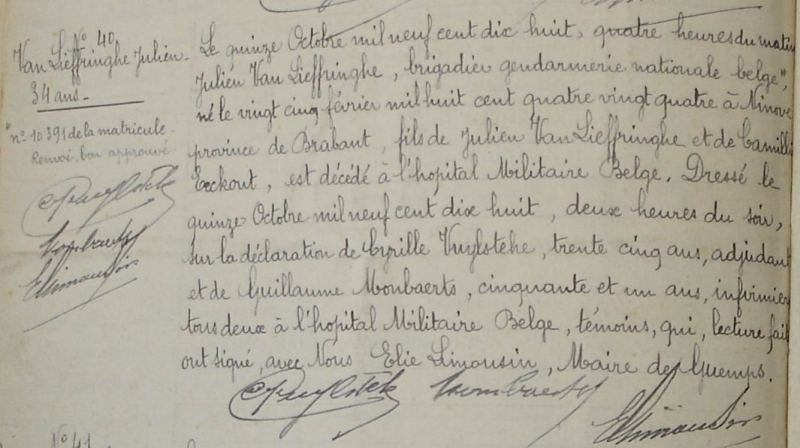 N° 40
Van Lieffringhe Julien.
34 ans.
"n° 10391 de la matricule.
Renvoi bon approuvé
Le quinze Octobre mil neuf cent dix huit, quatre heures du matin
Julien Van Lieffringhe, brigadier gendarmerie nationale belge",
né le vingt cinq février mil huit cent quatre vingt quatre à Ninove
province de Brabant, fils de Julien Van Lieffringhe et de Camille
Eeckout, est décédé à l'hopital Militaire Belge. Dressé le
quinze Octobre mil neuf cent dix huit, deux heures du soir,
sur la déclaration de Cyrille Vuylsteke, trente cinq ans, adjudant
et de Guillaume Monbaerts, cinquante et un ans, infirmier
tous deux à l'hopital Militaire Belge, témoins, qui, lecture fait
ont signé, avec Nous Elie Limousin, Maire de Guemps.
N° 41